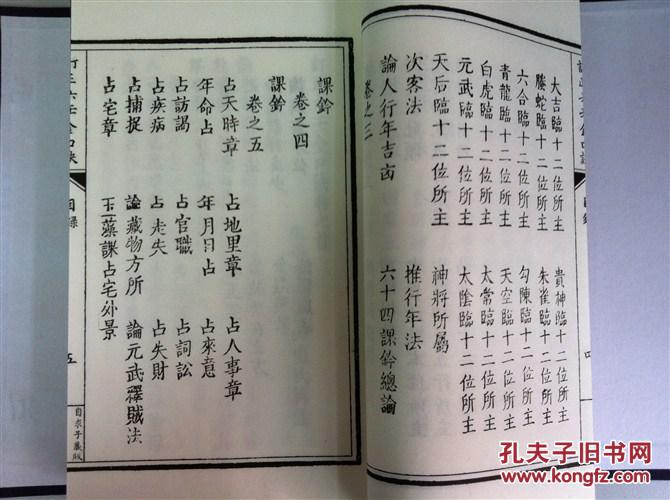 大吉臨十二位所主 貴神臨十二位所主
螣蛇臨十二位所主 朱雀臨十二位所主
六合臨十二位所主 勾陳臨十二位所主
青龍臨十二位所主 天空臨十二位所主
白虎臨十二位所主 太常臨十二位所主
元武臨十二位所主 太陰臨十二位所主
天后臨十二位所主 神將所屬
次客法 推行年法
論人行年吉凶 六十四課鈐總論
卷之三
課鈐
卷之四
課鈐
卷之五
占天時章 占地里章 占人事章
年命占 年月日占 占來意
占訪謁 占官職 占詞訟
占疾病 占走失 占失財
占捕捉 論藏物方所 論元武釋賊法
占宅章 玉藻課占宅外景
目錄
五
自求子藏版
孔夫子旧书网
kongfz.com